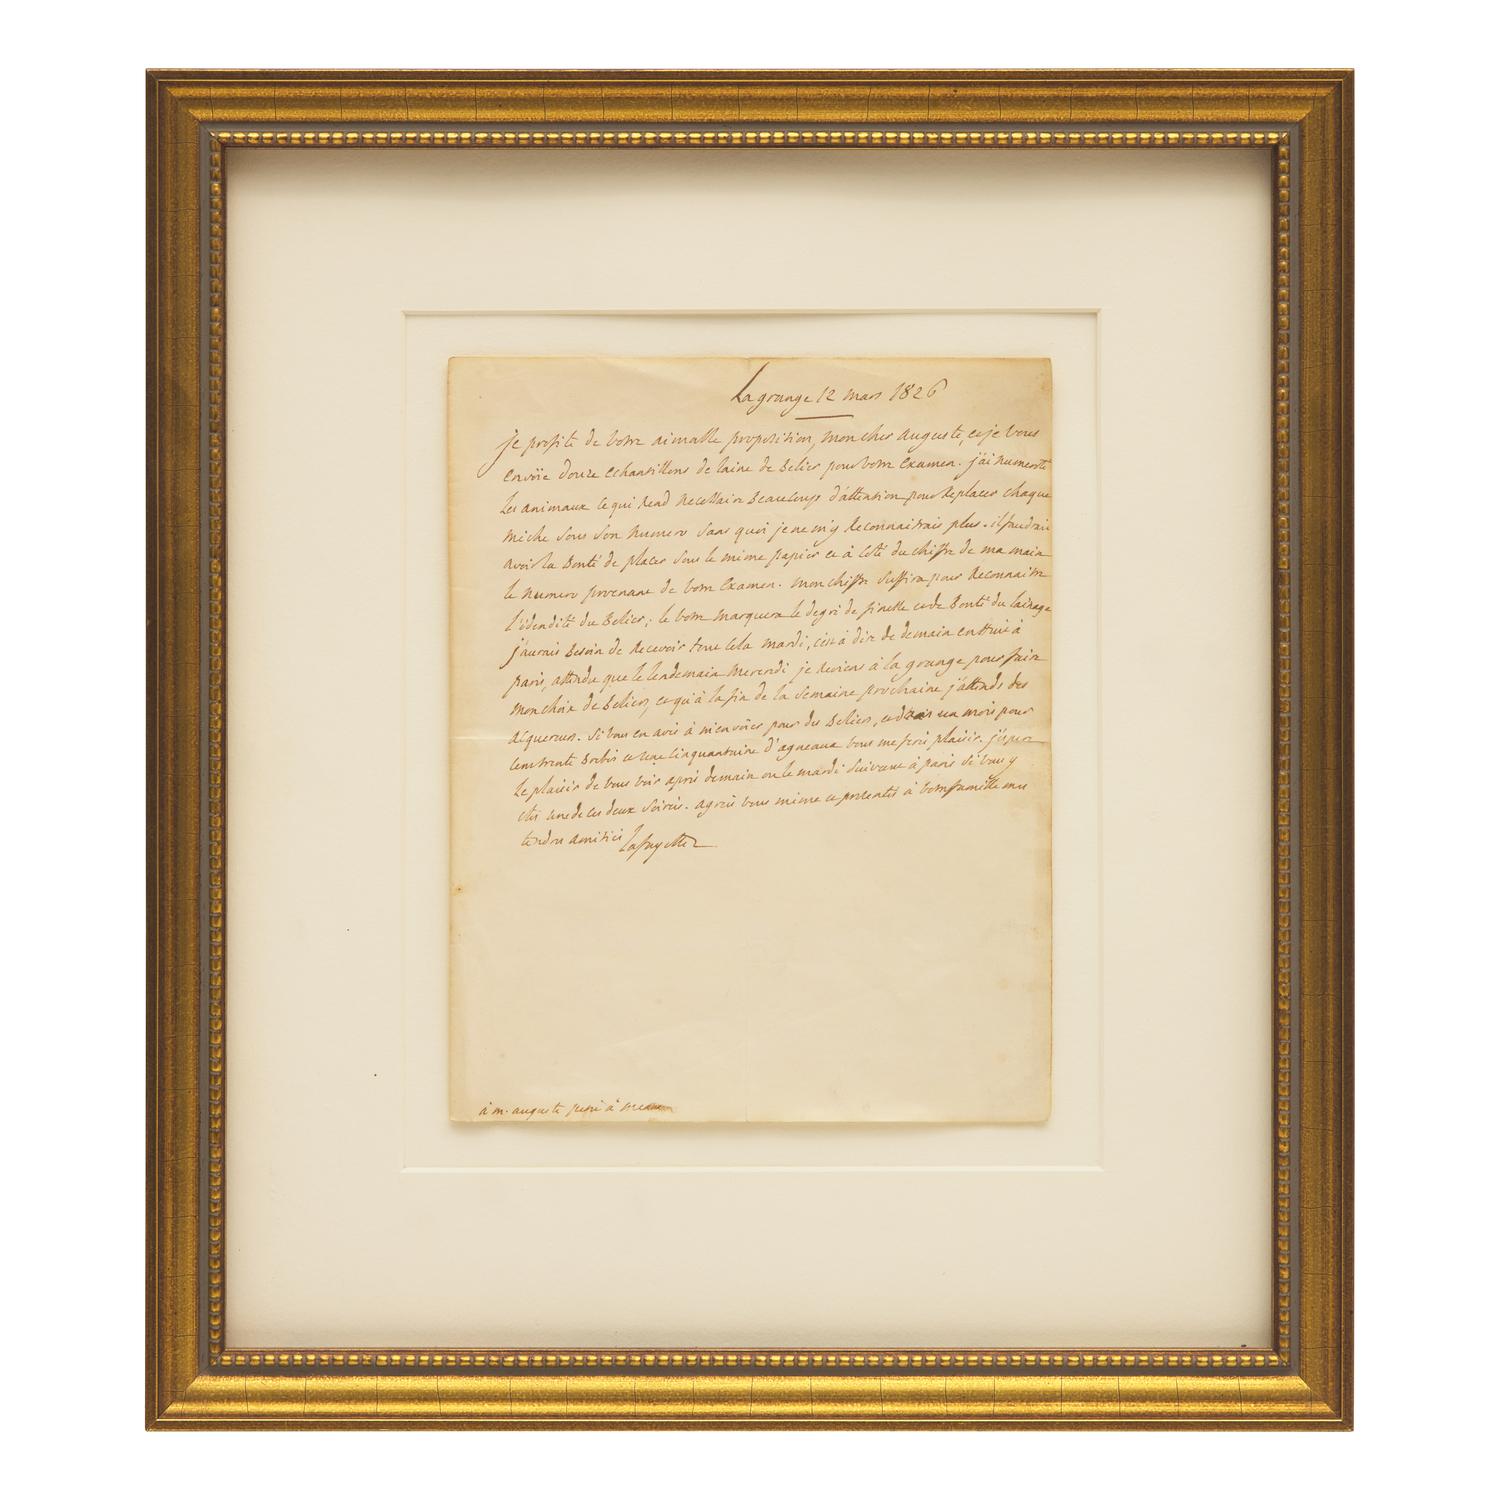 Lagrange 12 mars 1826
je profite de votre aimable proposition, mon cher auguste, et je vous
envoïe douze echantillons de laine de Belier pour votre examen. j'ai numeroté
les animaux ce qui rend necessaire Beaucoup d'attention pour replacer chaque
meche sous son numero sans quoi je ne m'y reconnaitrais plus. il faudrait
avoir la Bonté de placer sous le même papier et à coté du chiffre de ma main
le numero provenant de votre examen. mon chiffre suffira pour reconnaitre
l'identité du Belier; le votre marquera le degré de finesse et de Bonté du lainage
j'aurais Besoin de recevoir tout cela mardi, c'est à dire de demain en huit à
paris, attendu que le lendemain mercredi je reviens à la grange pour faire
mon choix de Beliers, et qu'à la fin de la semaine prochaine j'attends des
acquereurs. si vous en avés à m'envoïer pour des Beliers, et dans un mois pour
cent trente Brebis et une cinquantaine d'agneaux vous me ferés plaisir. j'espere
le plaisir de vous voir après demain ou le mardi suivant à paris si vous y
etes une de ces deux soirées. agréés vous même et presentés à votre famille mes
tendres amitiés Lafayette
à m. auguste à